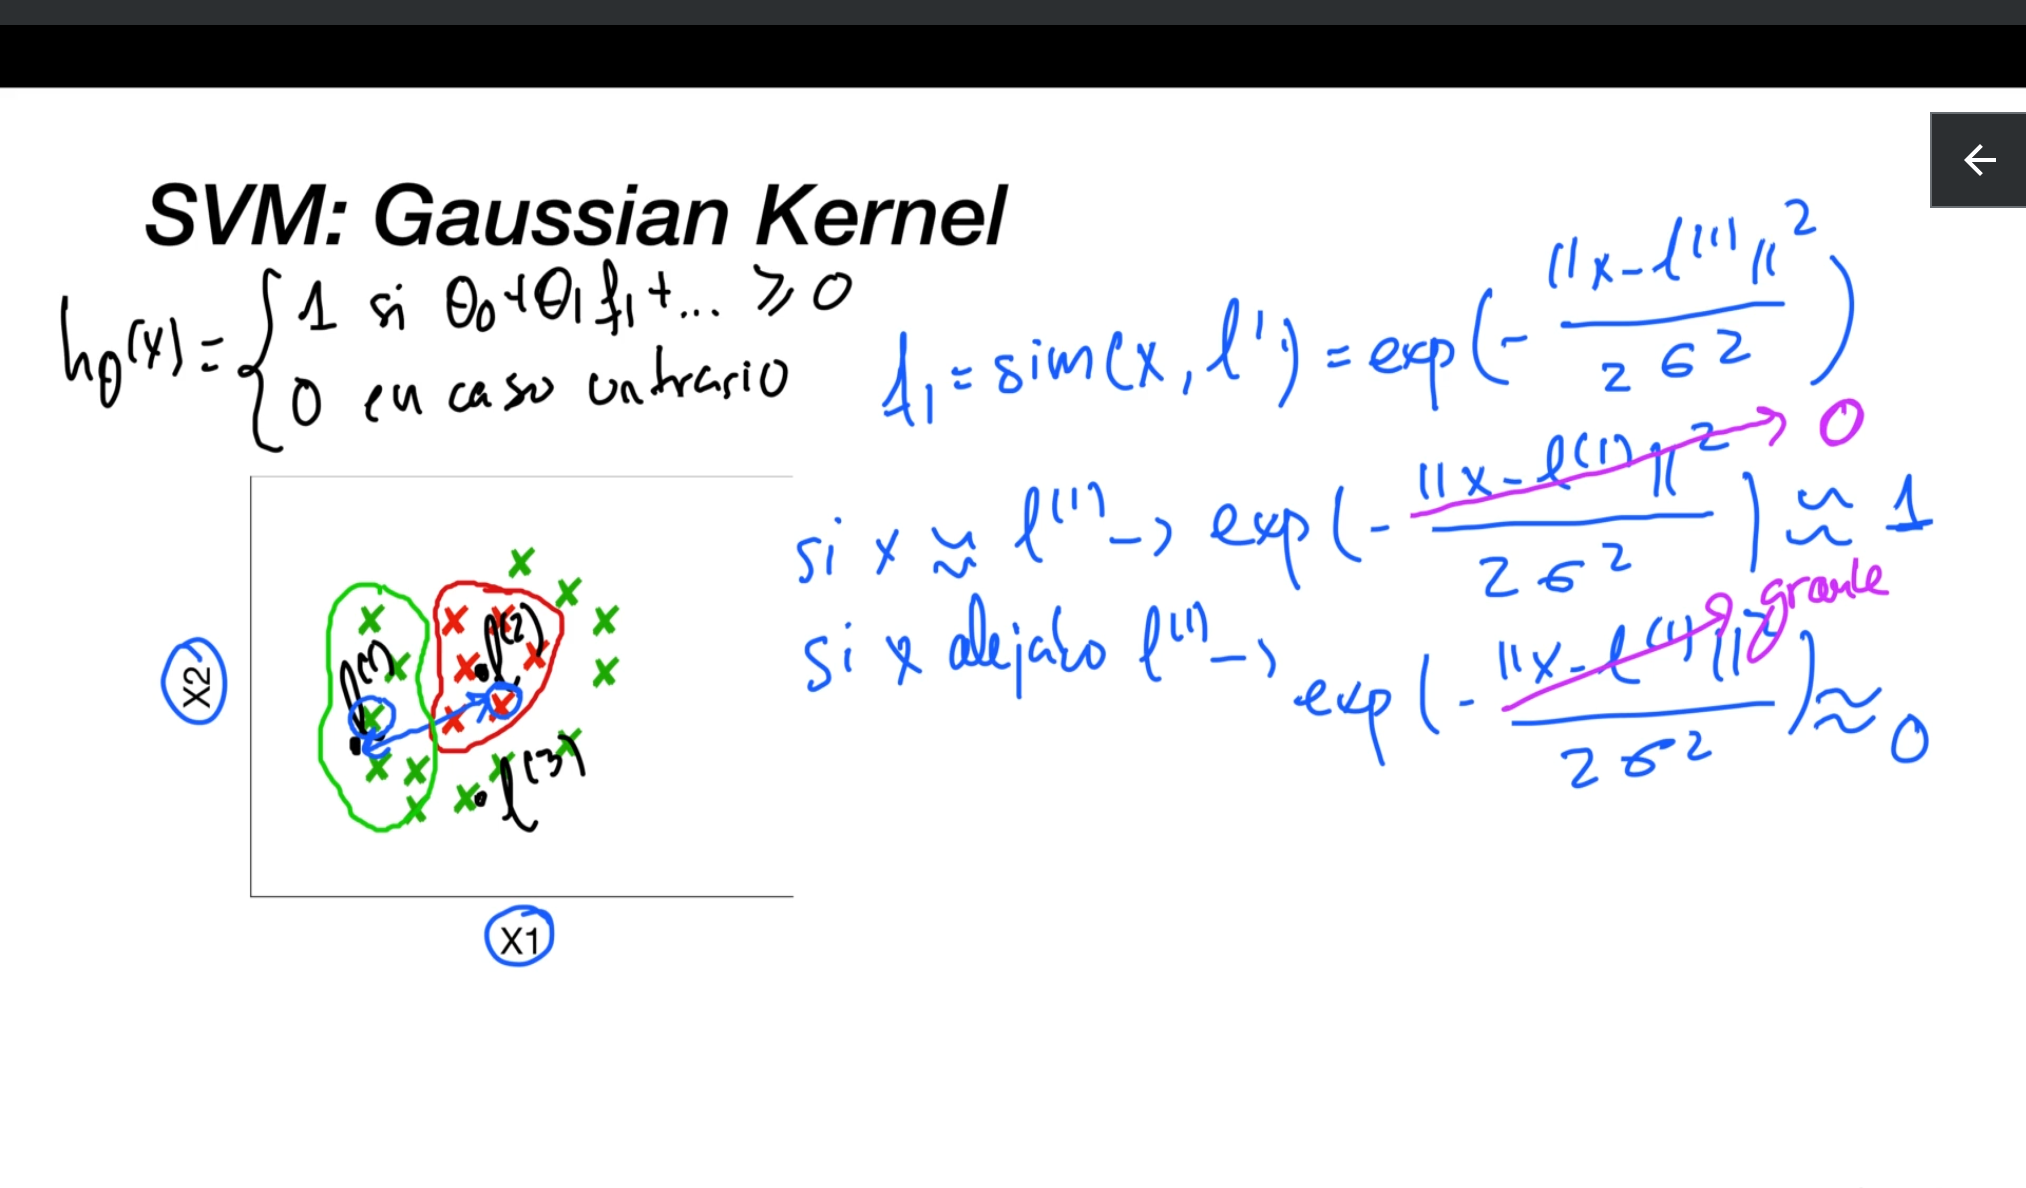 SVM: Gaussian Kernel
hθ(x) = { 1 si θ0 + θ1 f1 + ... ≥ 0
0 en caso contrario
f1 = sim(x, l') = exp(- ||x - l(1)||² / 2σ²)
si x ≈ l(1) → exp(- ||x - l(1)||² / 2σ²) ≈ 1
→ 0
si x alejado l(1) → exp(- ||x - l(1)||² / 2σ²) ≈ 0
grande
l(1)
l(2)
l(3)
X2
X1